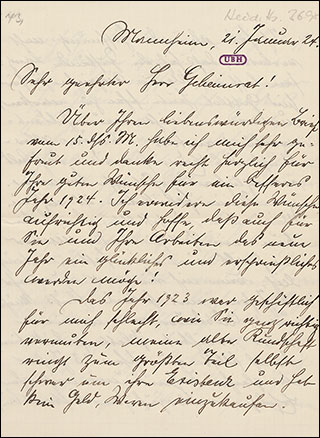 Mannheim, 21. Januar 24.
UBH
Sehr geehrter Herr Geheimrat!
Über Ihren liebenswürdigen Brief
vom 15. ds. M. habe ich mich sehr ge-
freut und danke recht herzlich für
Ihre guten Wünsche für ein besseres
Jahr 1924. Ich erwidere diese Wünsche
aufrichtig und hoffe, daß auch für
Sie und Ihre Arbeiten das neue
Jahr ein glückliches und ersprießliches
werden möge!
Das Jahr 1923 war geschäftlich
für mich schlecht, wie Sie ganz richtig
vermuten, meine alte Kundschaft
ringt zum größten Teil selbst
schwer um ihre Existenz und hat
kein Geld, Waren einzukaufen.